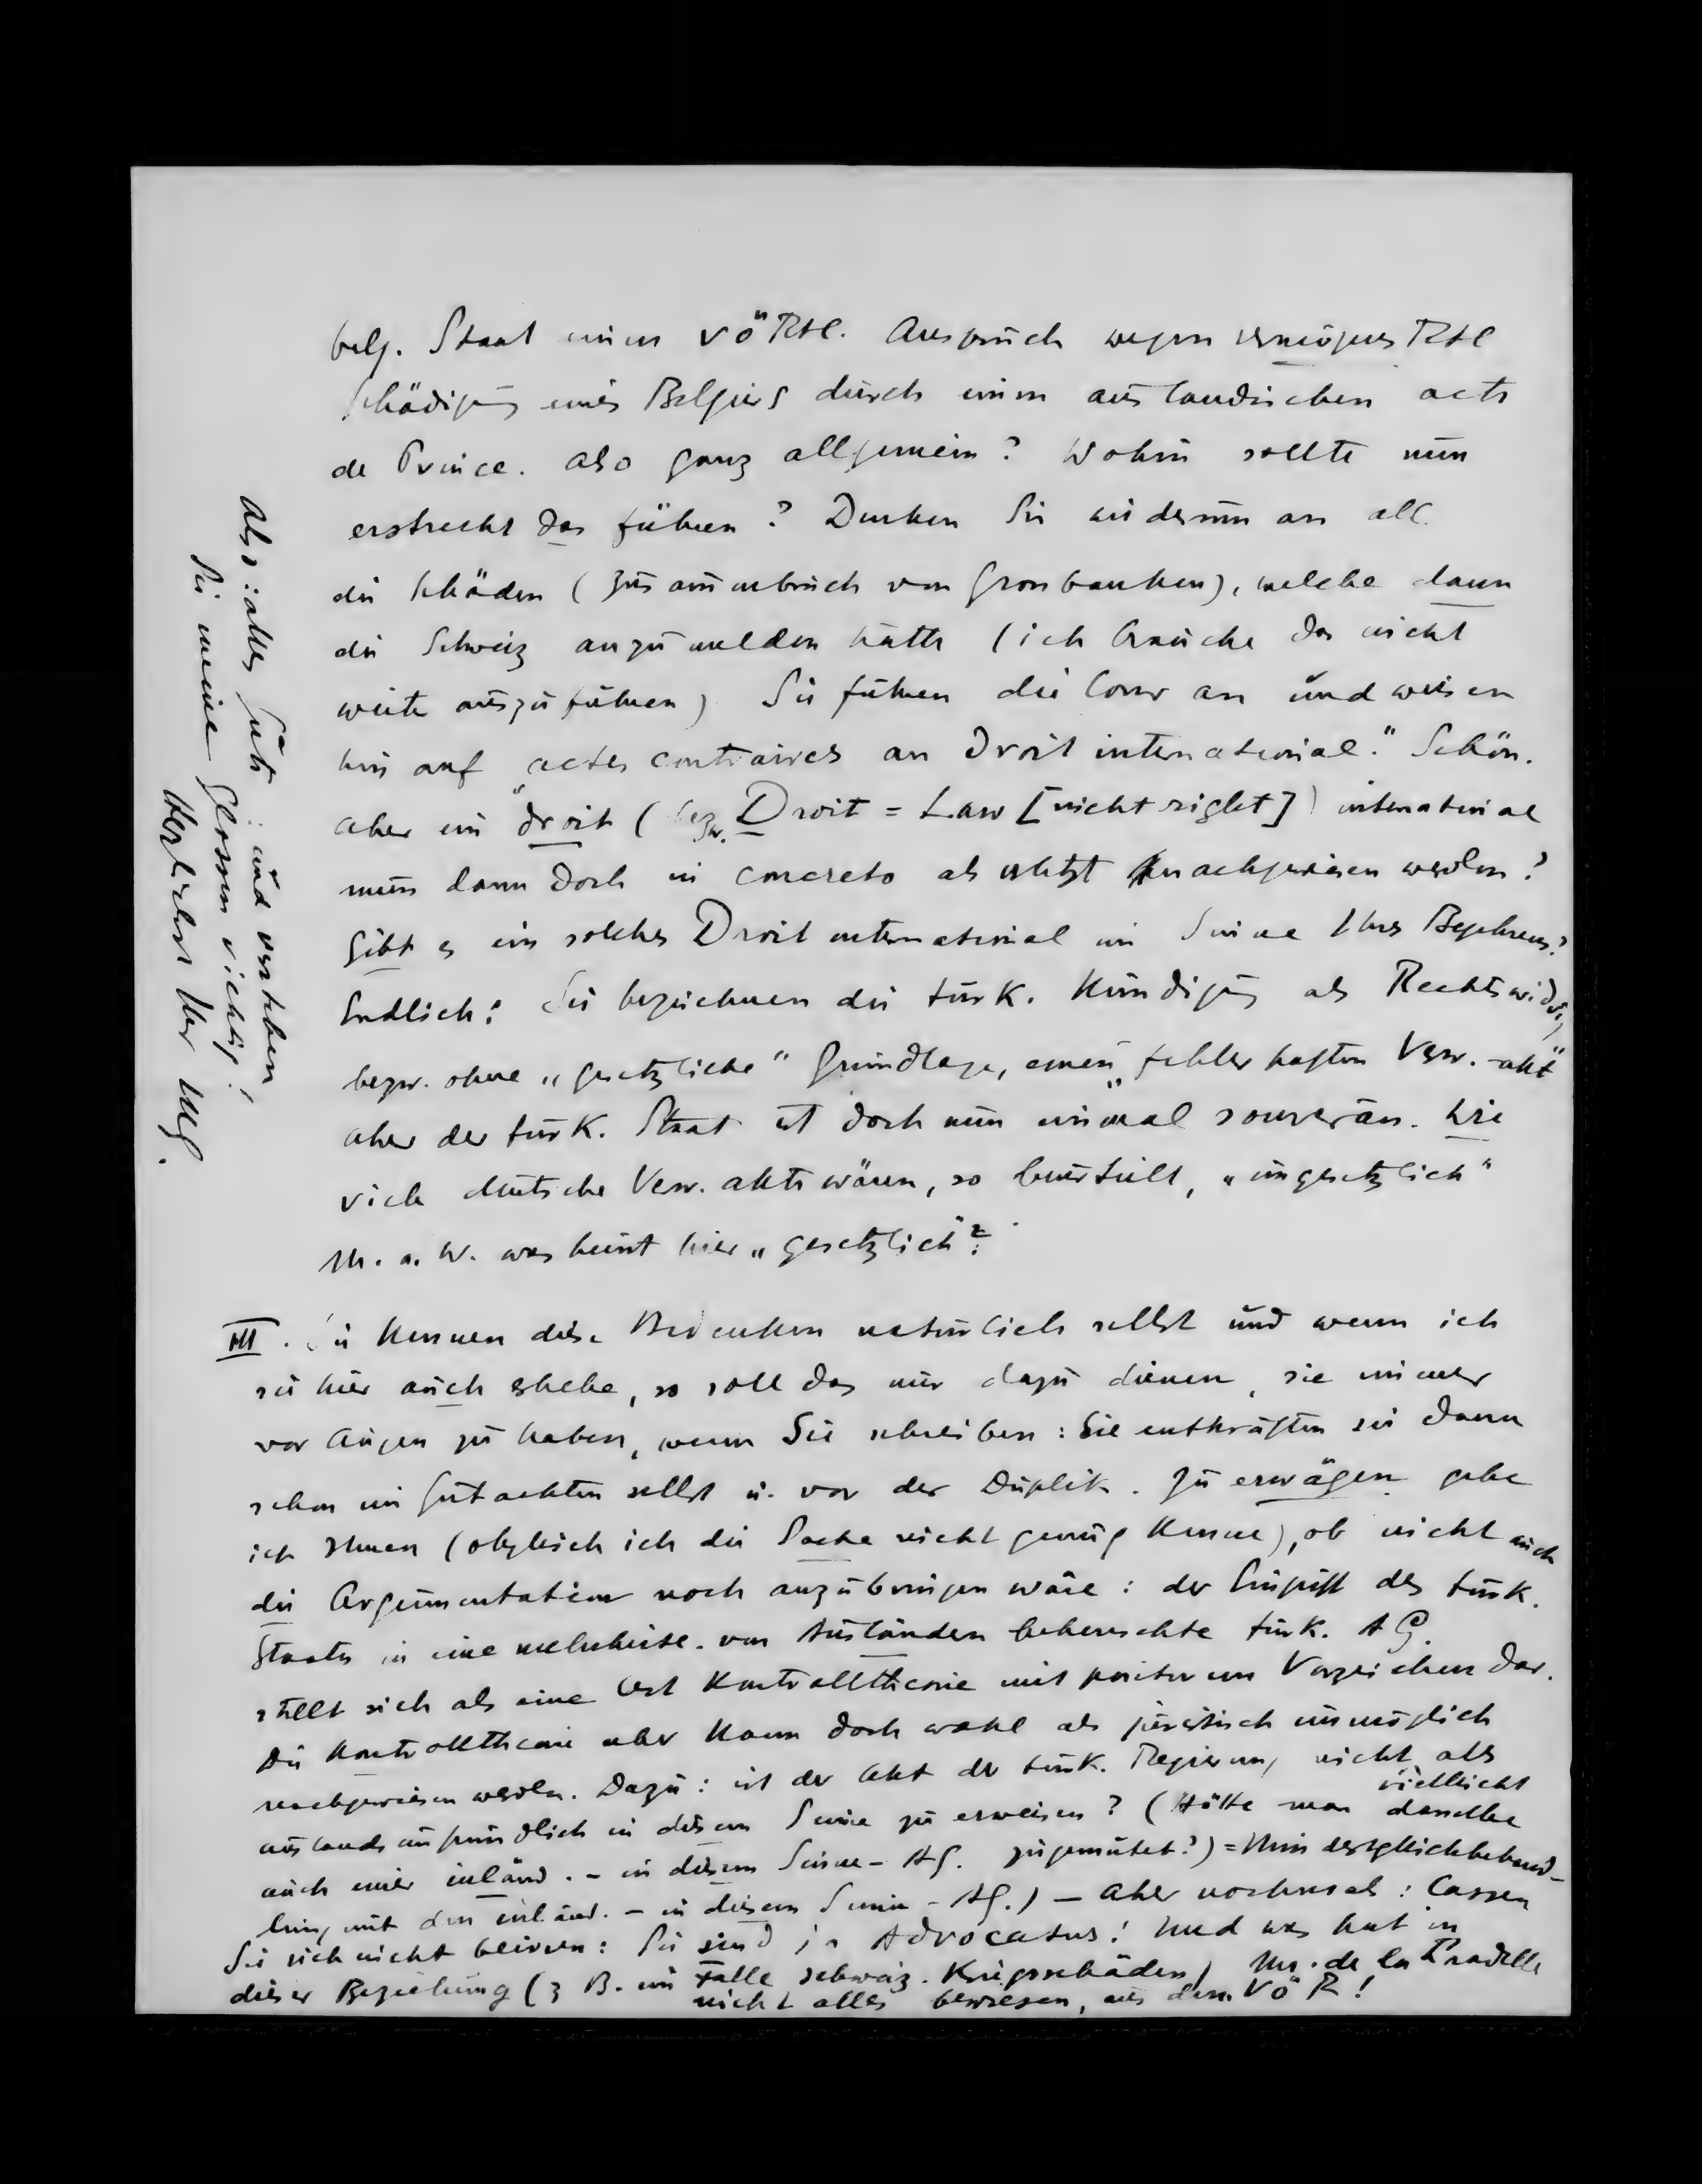 belg. Staat einen VöRtl. Anspruch wegen vermögensRtl
Schädigung eines Belgiers durch einen ausländischen acte
de Prince. Also ganz allgemein? Wohin sollte nun
erstrecht das führen? Denken Sie wiederum an all
die Schäden (Zusammenbruch von Grossbanken), welche dann
die Schweiz anzumelden hätte (ich brauche das nicht
weiter auszuführen) Sie führen die Cour an und weisen
hin auf „actes contraires au Droit international." Schön.
Aber ein droit (bezw. Droit = Law [nicht right]) international
muss dann doch in concreto als verletzt nachgewiesen werden?
Gibt es ein solches Droit international im Sinne Ihres Begehrens?
Endlich: Sie bezeichnen die türk. Kündigung als Rechtswidrig
bezw. ohne „gesetzliche" Grundlage, einen „fehlerhaften Verw.-akt"
Aber der türk. Staat ist doch nun einmal souverän. Wie
viele deutsche Verw. akte wären, so beurteilt, „ungesetzlich"
M. a. W. was heisst hier „gesetzlich"?
III. Sie kennen diese Bedenken natürlich selbst und wenn ich
sie hier auch erhebe, so soll das nur dazu dienen, sie immer
vor Augen zu haben, wenn Sie schreiben: Sie entkräften sie dann
schon im Gutachten selbst u. vor der Duplik. Zu erwägen gebe
ich Ihnen (obgleich ich die Sache nicht genug kenne), ob nicht auch
die Argumentation noch anzubringen wäre: der Eingriff des türk.
Staates in eine mehrheitl. von Ausländern beherrschte türk. AG.
stellt sich als eine Art Kontrolltheorie mit positivem Vorzeichen dar.
Die Kontrolltheorie aber kann doch wohl als juristisch unmöglich
nachgewiesen werden. Dazu: ist der Akt der türk. Regierung nicht als
auslandsunfreundlich in diesem Sinne zu erweisen? (Hätte man vielleicht dasselbe
auch einer inländ. - in diesem Sinne - AG. zugemutet?) = Nein
lung mit den inländ. - in diesem Sinne - AG.) - Aber nochmals: Lassen
Sie sich nicht beirren: Sie sind ja Advocatus! Und was hat in
dieser Beziehung (z B. im Falle schweiz. Kriegsschäden) Mr. de la Pradelle
nicht alles bewiesen, aus dem VöR!
Also: alles Gute: und verstehen
Sie meine Glossen richtig!
Herzlichst Ihr